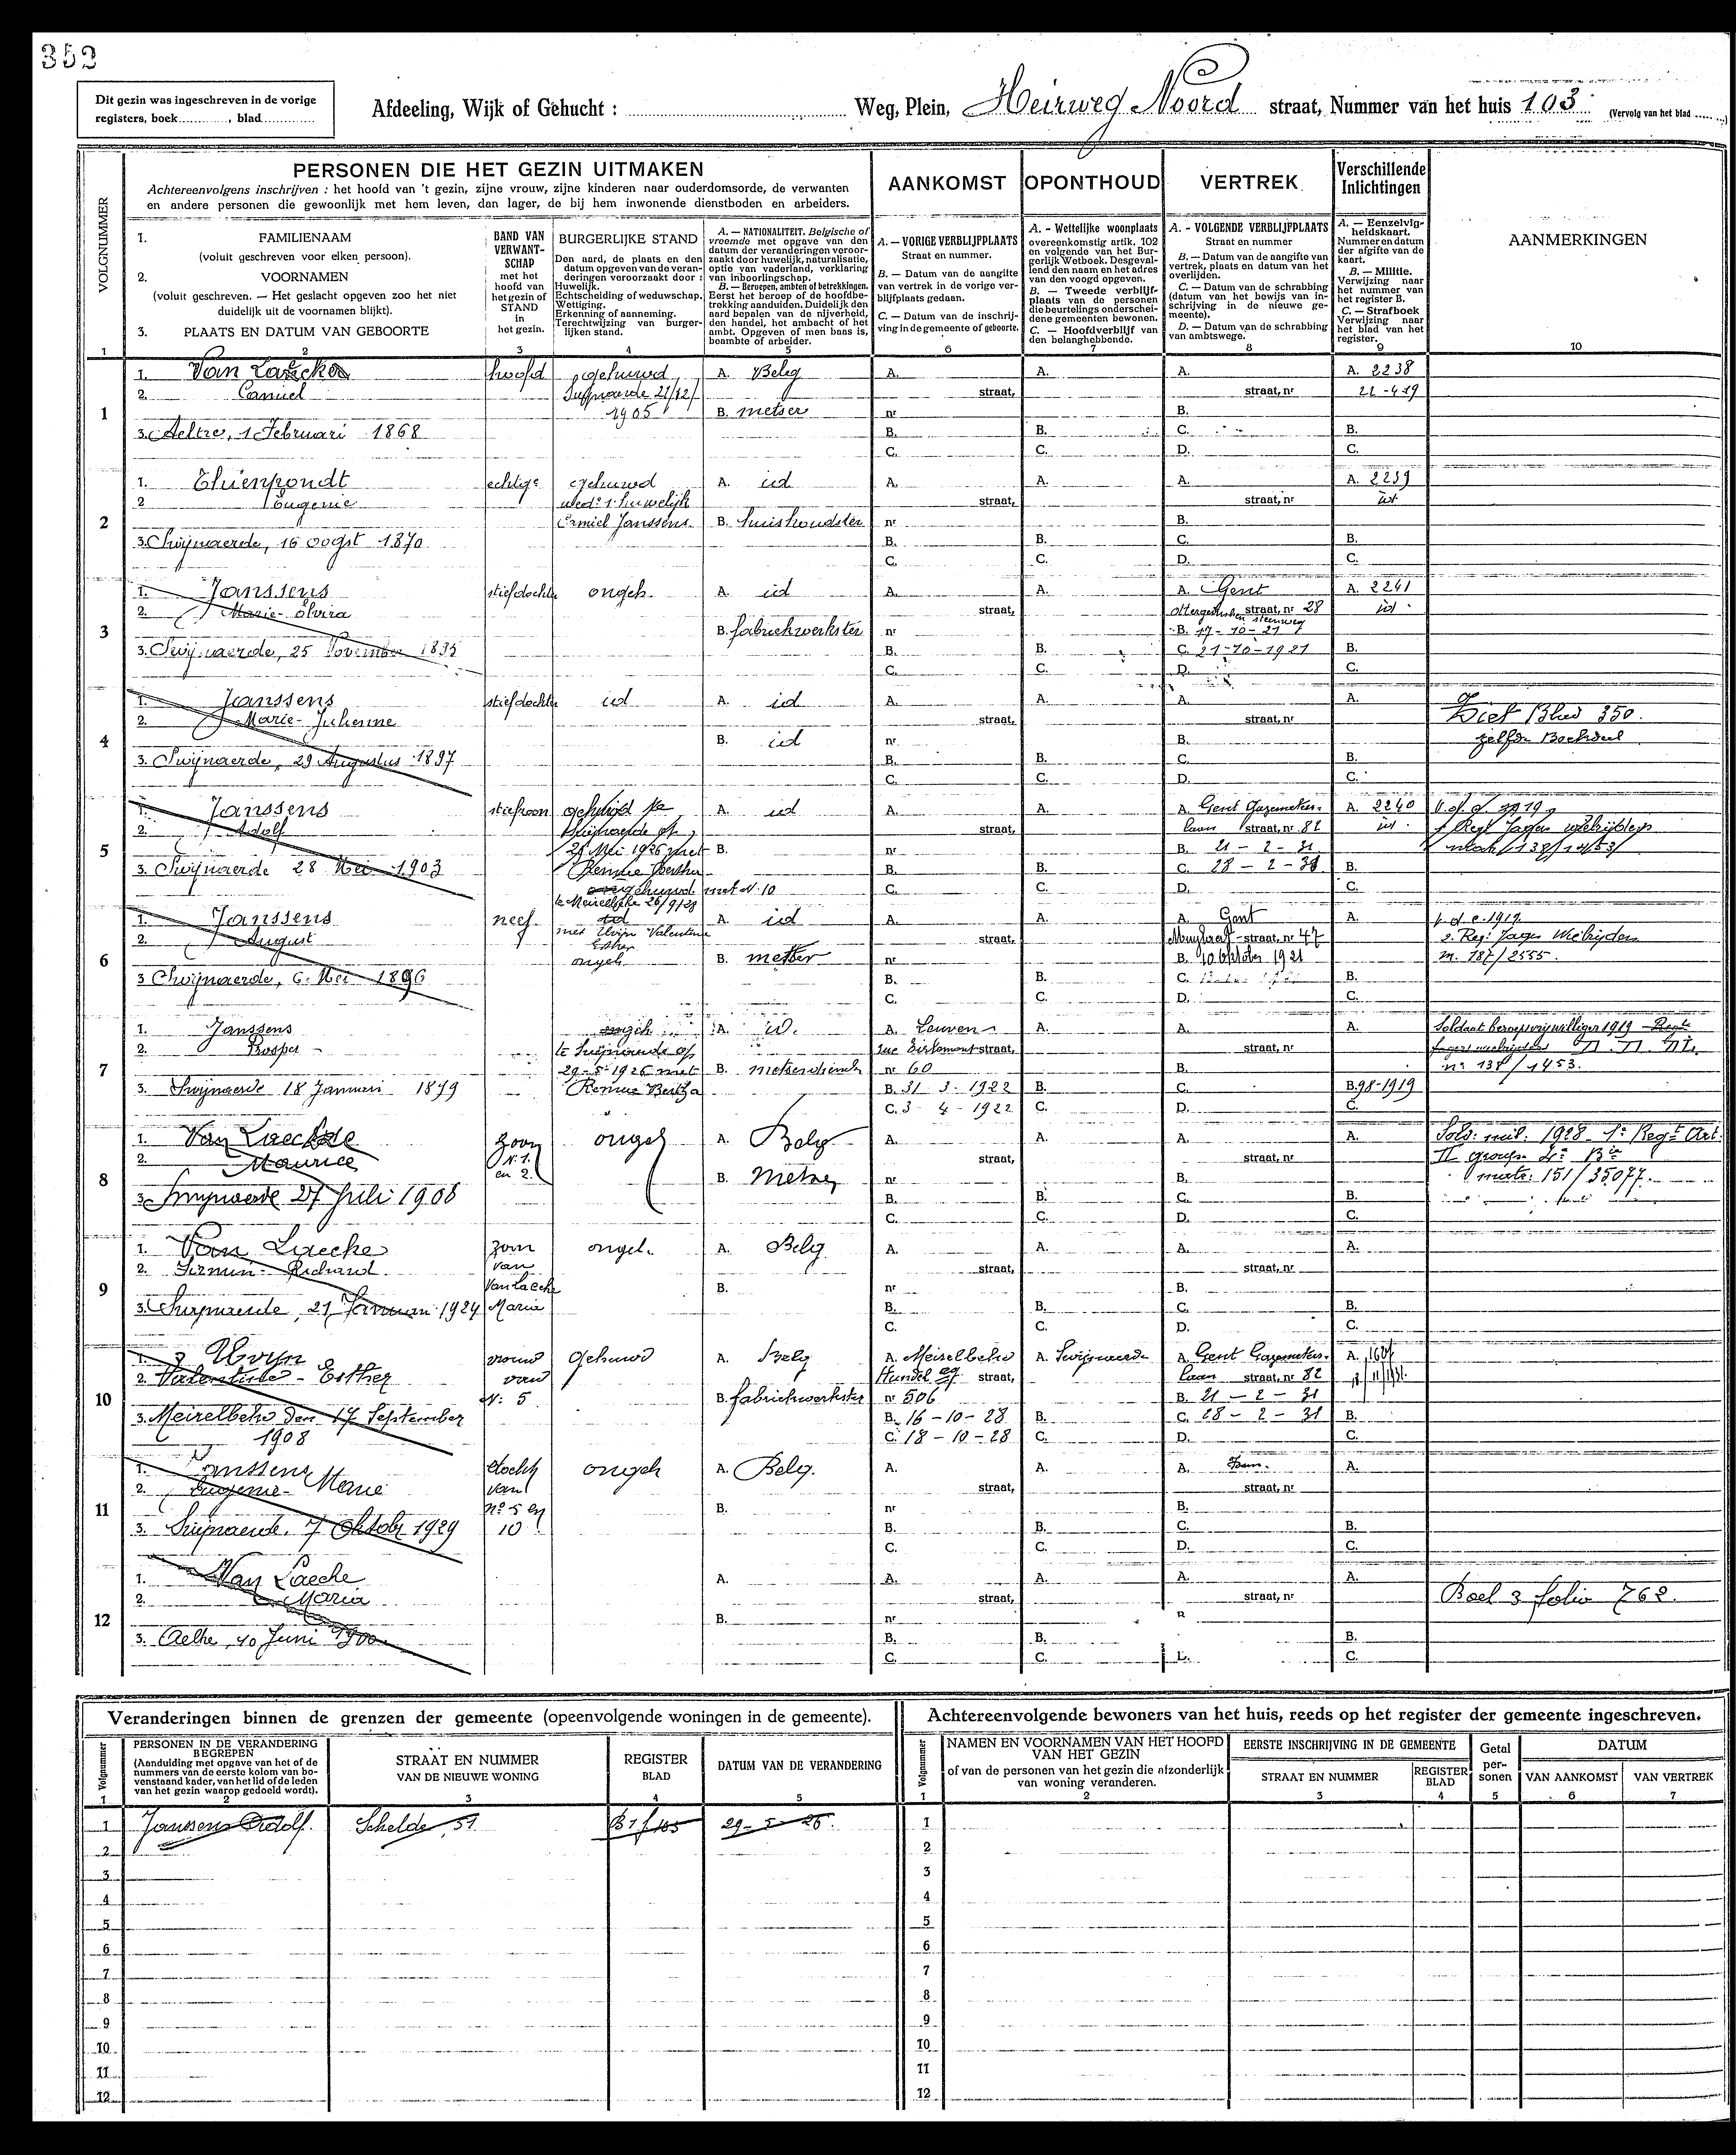 352
Dit gezin was ingeschreven in de vorige
registers, boek, blad
Afdeeling, Wijk of Gehucht : Weg, Plein, Heirweg Noord straat, Nummer van het huis 103 (Vervolg van het blad
PERSONEN DIE HET GEZIN UITMAKEN
Achtereenvolgens inschrijven : het hoofd van 't gezin, zijne vrouw, zijne kinderen naar ouderdomsorde, de verwanten
en andere personen die gewoonlijk met hem leven, dan lager, de bij hem inwonende dienstboden en arbeiders.
AANKOMST
OPONTHOUD
VERTREK
Verschillende
Inlichtingen
VOLGNUMMER
1. FAMILIENAAM
(voluit geschreven voor elken persoon).
2. VOORNAMEN
(voluit geschreven. — Het geslacht opgeven zoo het niet
duidelijk uit de voornamen blijkt).
3. PLAATS EN DATUM VAN GEBOORTE
BAND VAN
VERWANT-
SCHAP
met het
hoofd van
het gezin of
STAND
in
het gezin.
BURGERLIJKE STAND
Den aard, de plaats en den
datum opgeven van de veran-
deringen veroorzaakt door :
Huwelijk.
Echtscheiding of weduwschap.
Wettiging.
Erkenning of aanneming.
Terechtwijzing van burger-
lijken stand.
A. — NATIONALITEIT. Belgische of
vreemde met opgave van den
datum der veranderingen veroor-
zaakt door huwelijk, naturalisatie,
optie van vaderland, verklaring
van inboorlingschap.
B. — Beroepen, ambten of betrekkingen.
Eerst het beroep of de hoofdbe-
trekking aanduiden. Duidelijk den
aard bepalen van de nijverheid,
den handel, het ambacht of het
ambt. Opgeven of men baas is,
beambte of arbeider.
A. — VORIGE VERBLIJFPLAATS
Straat en nummer.
B. — Datum van de aangifte
van vertrek in de vorige ver-
blijfplaats gedaan.
C. — Datum van de inschrij-
ving in de gemeente of geboorte.
A. - Wettelijke woonplaats
overeenkomstig artik. 102
en volgende van het Bur-
gerlijk Wetboek. Desgeval-
lend den naam en het adres
van den voogd opgeven.
B. — Tweede verblijf-
plaats van de personen
die beurtelings onderschei-
dene gemeenten bewonen.
C. — Hoofdverblijf van
den belanghebbende.
A. - VOLGENDE VERBLIJFPLAATS
Straat en nummer
B. — Datum van de aangifte van
vertrek, plaats en datum van het
overlijden.
C. — Datum van de schrabbing
(datum van het bewijs van in-
schrijving in de nieuwe ge-
meente).
D. — Datum van de schrabbing
van ambtswege.
A. — Eenzelvig-
heidskaart.
Nummer en datum
der afgifte van de
kaart.
B. — Militie.
Verwijzing naar
het nummer van
het register B.
C. — Strafboek
Verwijzing naar
het blad van het
register.
AANMERKINGEN
1 2 3 4 5 6 7 8 9 10
1
1. Van Laecke hoofd gehuwd A. Belg A. A. A. A. 2238
2. Camiel Swijnaerde 21/12/ straat, straat, nr 22-4-19
1905 B. metser nr B.
3. Aeltre, 1 Februari 1868 B. B. C. B.
C. C. D. C.
2
1. Thienpondt echtge gehuwd A. id A. A. A. A. 2239
2 Eugenie wede 1e huwelijk straat, straat, nr id
Camiel Janssens B. huishoudster nr B.
3. Swijnaerde, 16 oogst 1870 B. B. C. B.
C. C. D. C.
3
1. Janssens stiefdochter ongeh. A. id A. A. A. Gent A. 2241
2. Marie-Elvira straat, straat, nr 28 id.
steenweg
B. fabriekwerkster nr B. 17-10-21
3. Swijnaerde, 25 November 1895 B. B. C. 21-10-1921 B.
C. C. D. C.
4
1. Janssens stiefdochter id A. id A. A. A. A.
2. Marie-Julienne straat, straat, nr Ziet Blad 350.
B. id nr B. zelfde Boekdeel
3. Swijnaerde, 29 Augustus 1897 B. B. C. B.
C. C. D. C.
5
1. Janssens stiefzoon gehuwd te A. id A. A. A. Gent Gazemeters- A. 2240
2. Adolf Swijnaerde op straat, laan straat, nr 82 id.
29 Mei 1926 met B. nr B. 21-2-31
3. Swijnaerde 28 Mei 1903 Remue Bertha B. B. C. 28-2-31 B.
gehuwd met N. 10 C. C. D. C.
te Meirelbeke 26/9/28
6
1. Janssens neef id A. id A. A. A. Gent A.
2. August met Uvijn Valentine straat, straat, nr 47
Esther
ongeh. B. metser nr B. 10 October 1921
3 Swijnaerde, 6 Mei 1896 B. B. C. B.
C. C. D. C.
7
1. Janssens ongeh. A. id. A. Leuven A. A. A. Soldaat beroepsvrijwilliger 1919
2. Prosper te Swijnaerde op straat, straat, nr
29-5-1926 met B. metserdiender nr 60 B. n° 138/1453.
3. Swijnaerde 18 Januari 1899 Remue Bertha B. 31-3-1922 B. C. B. 98-1919
C. 3-4-1922 C. D. C.
8
1. Van Laecke zoon ongeh A. Belg A. A. A. A. Sold. mil. 1928 1e Regt Art.
2. Maurice N. 1. straat, straat, nr II groep
en 2. B. Metser nr B. 151/35077.
3. Swijnaerde 27 Juli 1908 B. B. C. B.
C. C. D. C.
9
1. Van Laecke zoon ongeh. A. Belg A. A. A. A.
2. Firmin-Richard. van straat, straat, nr
Van Laecke B. nr B.
3. Swijnaerde, 21 Januari 1924 Maria B. B. C. B.
C. C. D. C.
10
1. Uvijn vrouw gehuwd A. Belg A. Meirelbeke A. Swijnaerde A. Gent Gazemeters- A.
2. Valentine-Esther van straat, laan straat, nr 82
N: 5 B. fabriekwerkster nr 506 B. 21-2-31
3. Meirelbeke den 17 September B. 16-10-28 B. C. 28-2-31 B.
1908 C. 18-10-28 C. D. C.
11
1. Janssens docht ongeh A. Belg. A. A. A. A.
2. Eugenie-Marie van straat, straat, nr
n° 5 en B. nr B.
3. Swijnaerde, 7 Oktobr 1929 10 B. B. C. B.
C. C. D. C.
12
1. Van Laecke A. A. A. A. A.
2. Maria straat, straat, nr Boek 3 folio 762.
B. nr
3. Aeltre, 10 Juni 1900 B. B. B.
C. C. C.
Veranderingen binnen de grenzen der gemeente (opeenvolgende woningen in de gemeente).
Volgnummer
PERSONEN IN DE VERANDERING
BEGREPEN
(Aanduiding met opgave van het of de
nummers van de eerste kolom van bo-
venstaand kader, van het lid of de leden
van het gezin waarop gedoeld wordt).
STRAAT EN NUMMER
VAN DE NIEUWE WONING
REGISTER
BLAD
DATUM VAN DE VERANDERING
1 2 3 4 5
1 Janssens Adolf. Schelde, 51 B 1 f 165 29-5-26.
2
3
4
5
6
7
8
9
10
11
12
Achtereenvolgende bewoners van het huis, reeds op het register der gemeente ingeschreven.
Volgnummer
NAMEN EN VOORNAMEN VAN HET HOOFD
VAN HET GEZIN
of van de personen van het gezin die afzonderlijk
van woning veranderen.
EERSTE INSCHRIJVING IN DE GEMEENTE
STRAAT EN NUMMER
REGISTER
BLAD
Getal
per-
sonen
DATUM
VAN AANKOMST
VAN VERTREK
1 2 3 4 5 6 7
1
2
3
4
5
6
7
8
9
10
11
12